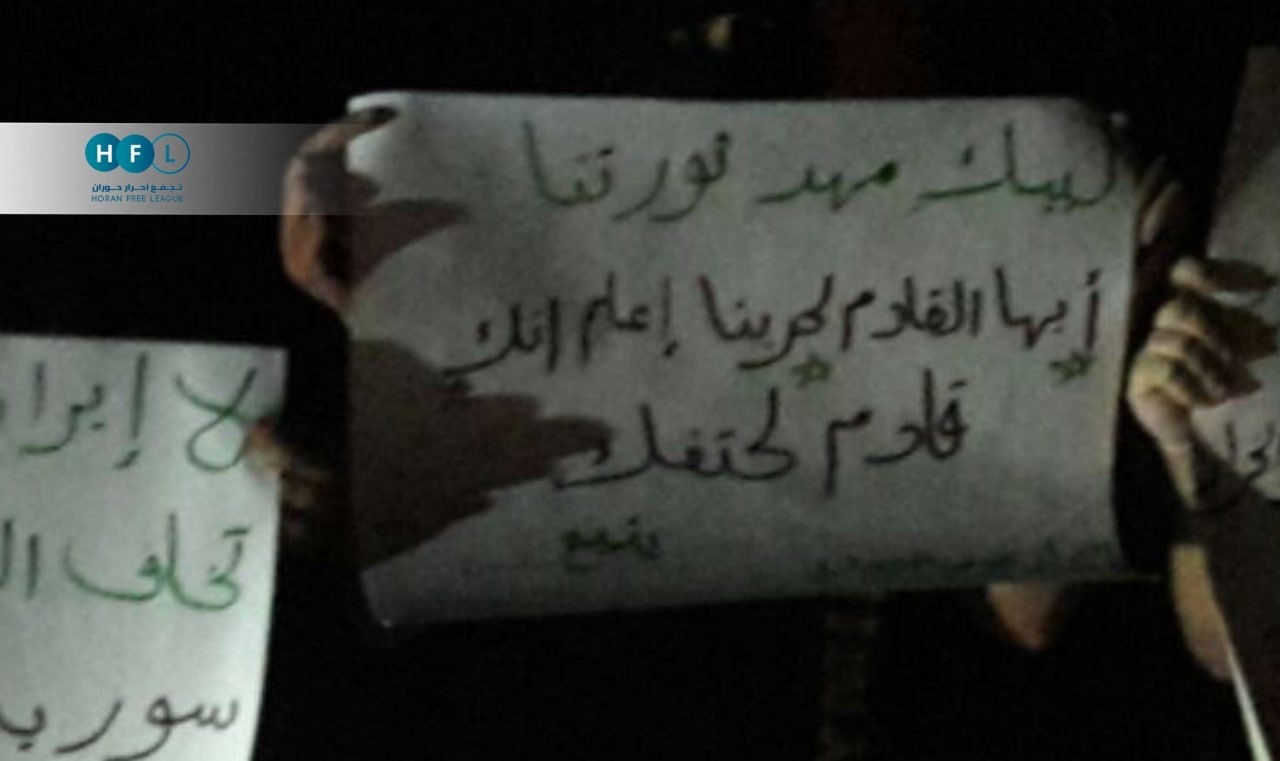 HFL
تجمع أحرار حوران
HORAN FREE LEAGUE
لبيك مهد ثورتنا
أيها القادم لحربنا إعلم انك
قادم لحتفك
يتبع
لا إيرا
تخلف ال
سوريـ